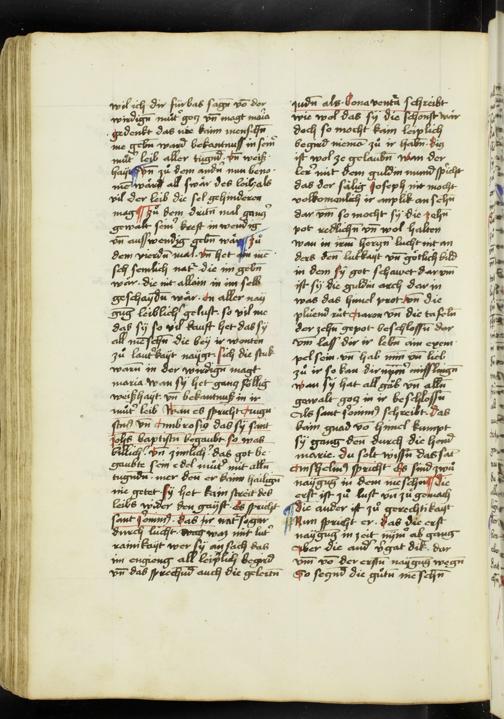 wil ich dir fürbas sagē vō der
wirdigū mūt gotz vn̄ magt maria
gedenkt das nie kaim menschn̄
me gebn̄ ward bekantnuss in sein
mūt leib aller tugnd vn̄ weiß
hayt vn̄ zu dem andn̄ nun beno
me ward all swär des leibs als
vil der leib die sel gehindern
mag Zu dem dritn̄ mal gantz
gewalt sein̄ krefft in wendig
vn̄ auswendig gebn̄ wär Zu
dem vierdn̄ mal vn̄ het ain me
sch semlich nat die im gebn̄
wär die nit allain in im selb
geschaydn̄ wär in aller nay
gug leiblich gelust so vil me
das sy so vil krafft het das sy
all mēschn̄ die bey ir wonten
zu laut kayt naygt sich die stuk
warn̄ in der wirdign̄ magt
maria wan sy het gantz follig
weißhayt vn̄ bekantnuß in ir
mūt leib Wan es spricht Augu
stinꝰ vn̄ Ambrosiꝰ das sy sant
Johs baptistn̄ begaubt so was
billich vn̄ zimlich das got be
gaubte sein edel mūt mit alln̄
tugndn̄ mer den er kain hailign̄
nie getet sy het kain streit des
leibs wider den gayst Es spricht
sant Jeronimꝰ das ir nat sogar
durch lucht was mit lut
rainikayt wer sy an sach das
im engieng all leiplich begird
vn̄ das sprechnd auch die gelertn
judn̄ als Bonaventūra schreibt
wie wol das sy die schonst wär
doch so mocht kain leiplich
begird niemā zu ir habn̄ dz
ist wol ze gelaubn̄ wan der
ler mit dem guldin mund spricht
das der sälig Joseph nie mocht
volkomenlich ir antplik an sehn̄
dar vm so mocht sy die zehn
pot redlich vn̄ wol halten
wan in irm hertzn lucht nit an
ders den lutkayt vn̄ götlich bild
in dem sy got schawet dar vm
ist sy die guldin arch dar in
was das himel prot vn̄ die
plüend rūt Aaron vn̄ die tafeln
der zehn gepot beschlossn̄ dar
vm lass dir ir lebn̄ ain exem
pel sein vn̄ hab inn vn̄ lieb
zu ir so kan dir nymer misslingn̄
wan sy hat all gab vn̄ alln̄
gewalt gotz in ir beschlossn̄
Als sant Jeronimꝰ schreibt das
kain gnad vō himel kumpt
sy gang den durch die hend
marie du solt wissn̄ das sāt
Anshelmꝰ spricht Es sind zwū
naygug in dem meschn̄ die
erst ist zu lust vn̄ zu gemach
die ander ist zu gerechtikayt
Nun spricht er das die erst
naygug in zeit nym ab gantz
Aber die and v̄gat dik dar
vm vō der erstn̄ naygug wegn̄
So segnd die gūtn̄ meschn̄